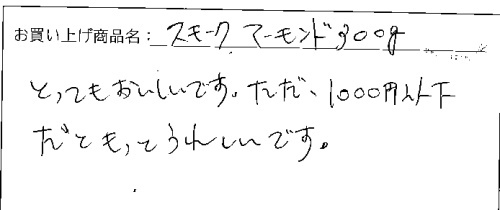 お買い上げ商品名：スモークアーモンド300g
とってもおいしいです。ただ、1000円以下
だともっとうれしいです。